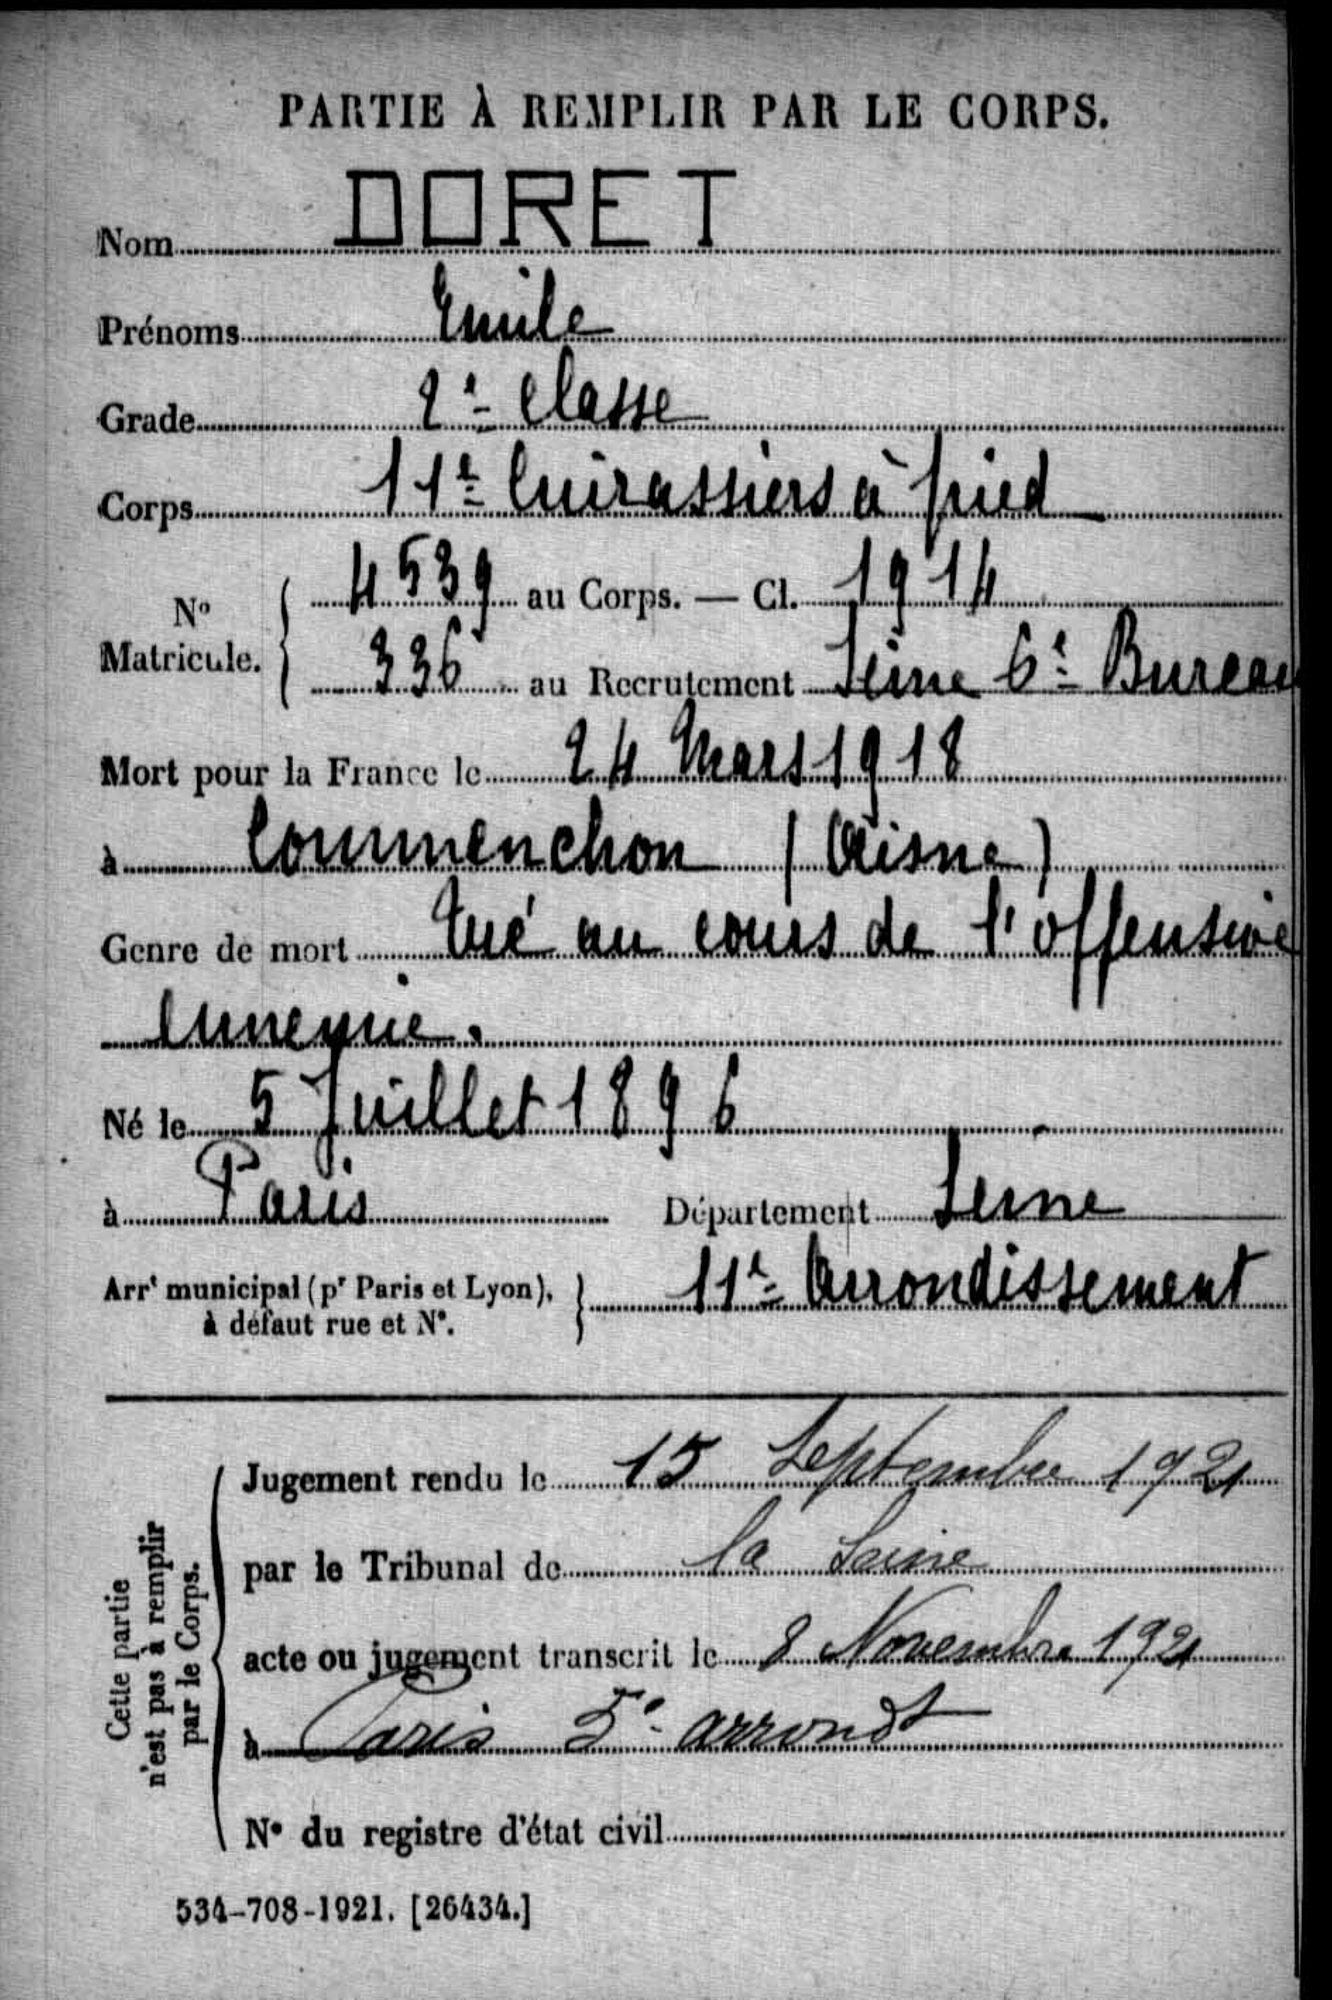 PARTIE À REMPLIR PAR LE CORPS.
Nom DORET
Prénoms Emile
Grade 2e classe
Corps 11e Cuirassiers à pied
N° Matricule. 4539 au Corps. — Cl. 1914
336 au Recrutement Seine 6e Bureau
Mort pour la France le 24 Mars 1918
à Commenchon (Aisne)
Genre de mort Tué au cours de l'offensive
ennemie.
Né le 5 Juillet 1896
à Paris Département Seine
Arrt municipal (pr Paris et Lyon), à défaut rue et N°. 11e Arrondissement
Cette partie n'est pas à remplir par le Corps.
Jugement rendu le 15 Septembre 1921
par le Tribunal de la Seine
acte ou jugement transcrit le 8 Novembre 1921
à Paris 5e arrondt
N° du registre d'état civil
534-708-1921. [26434.]